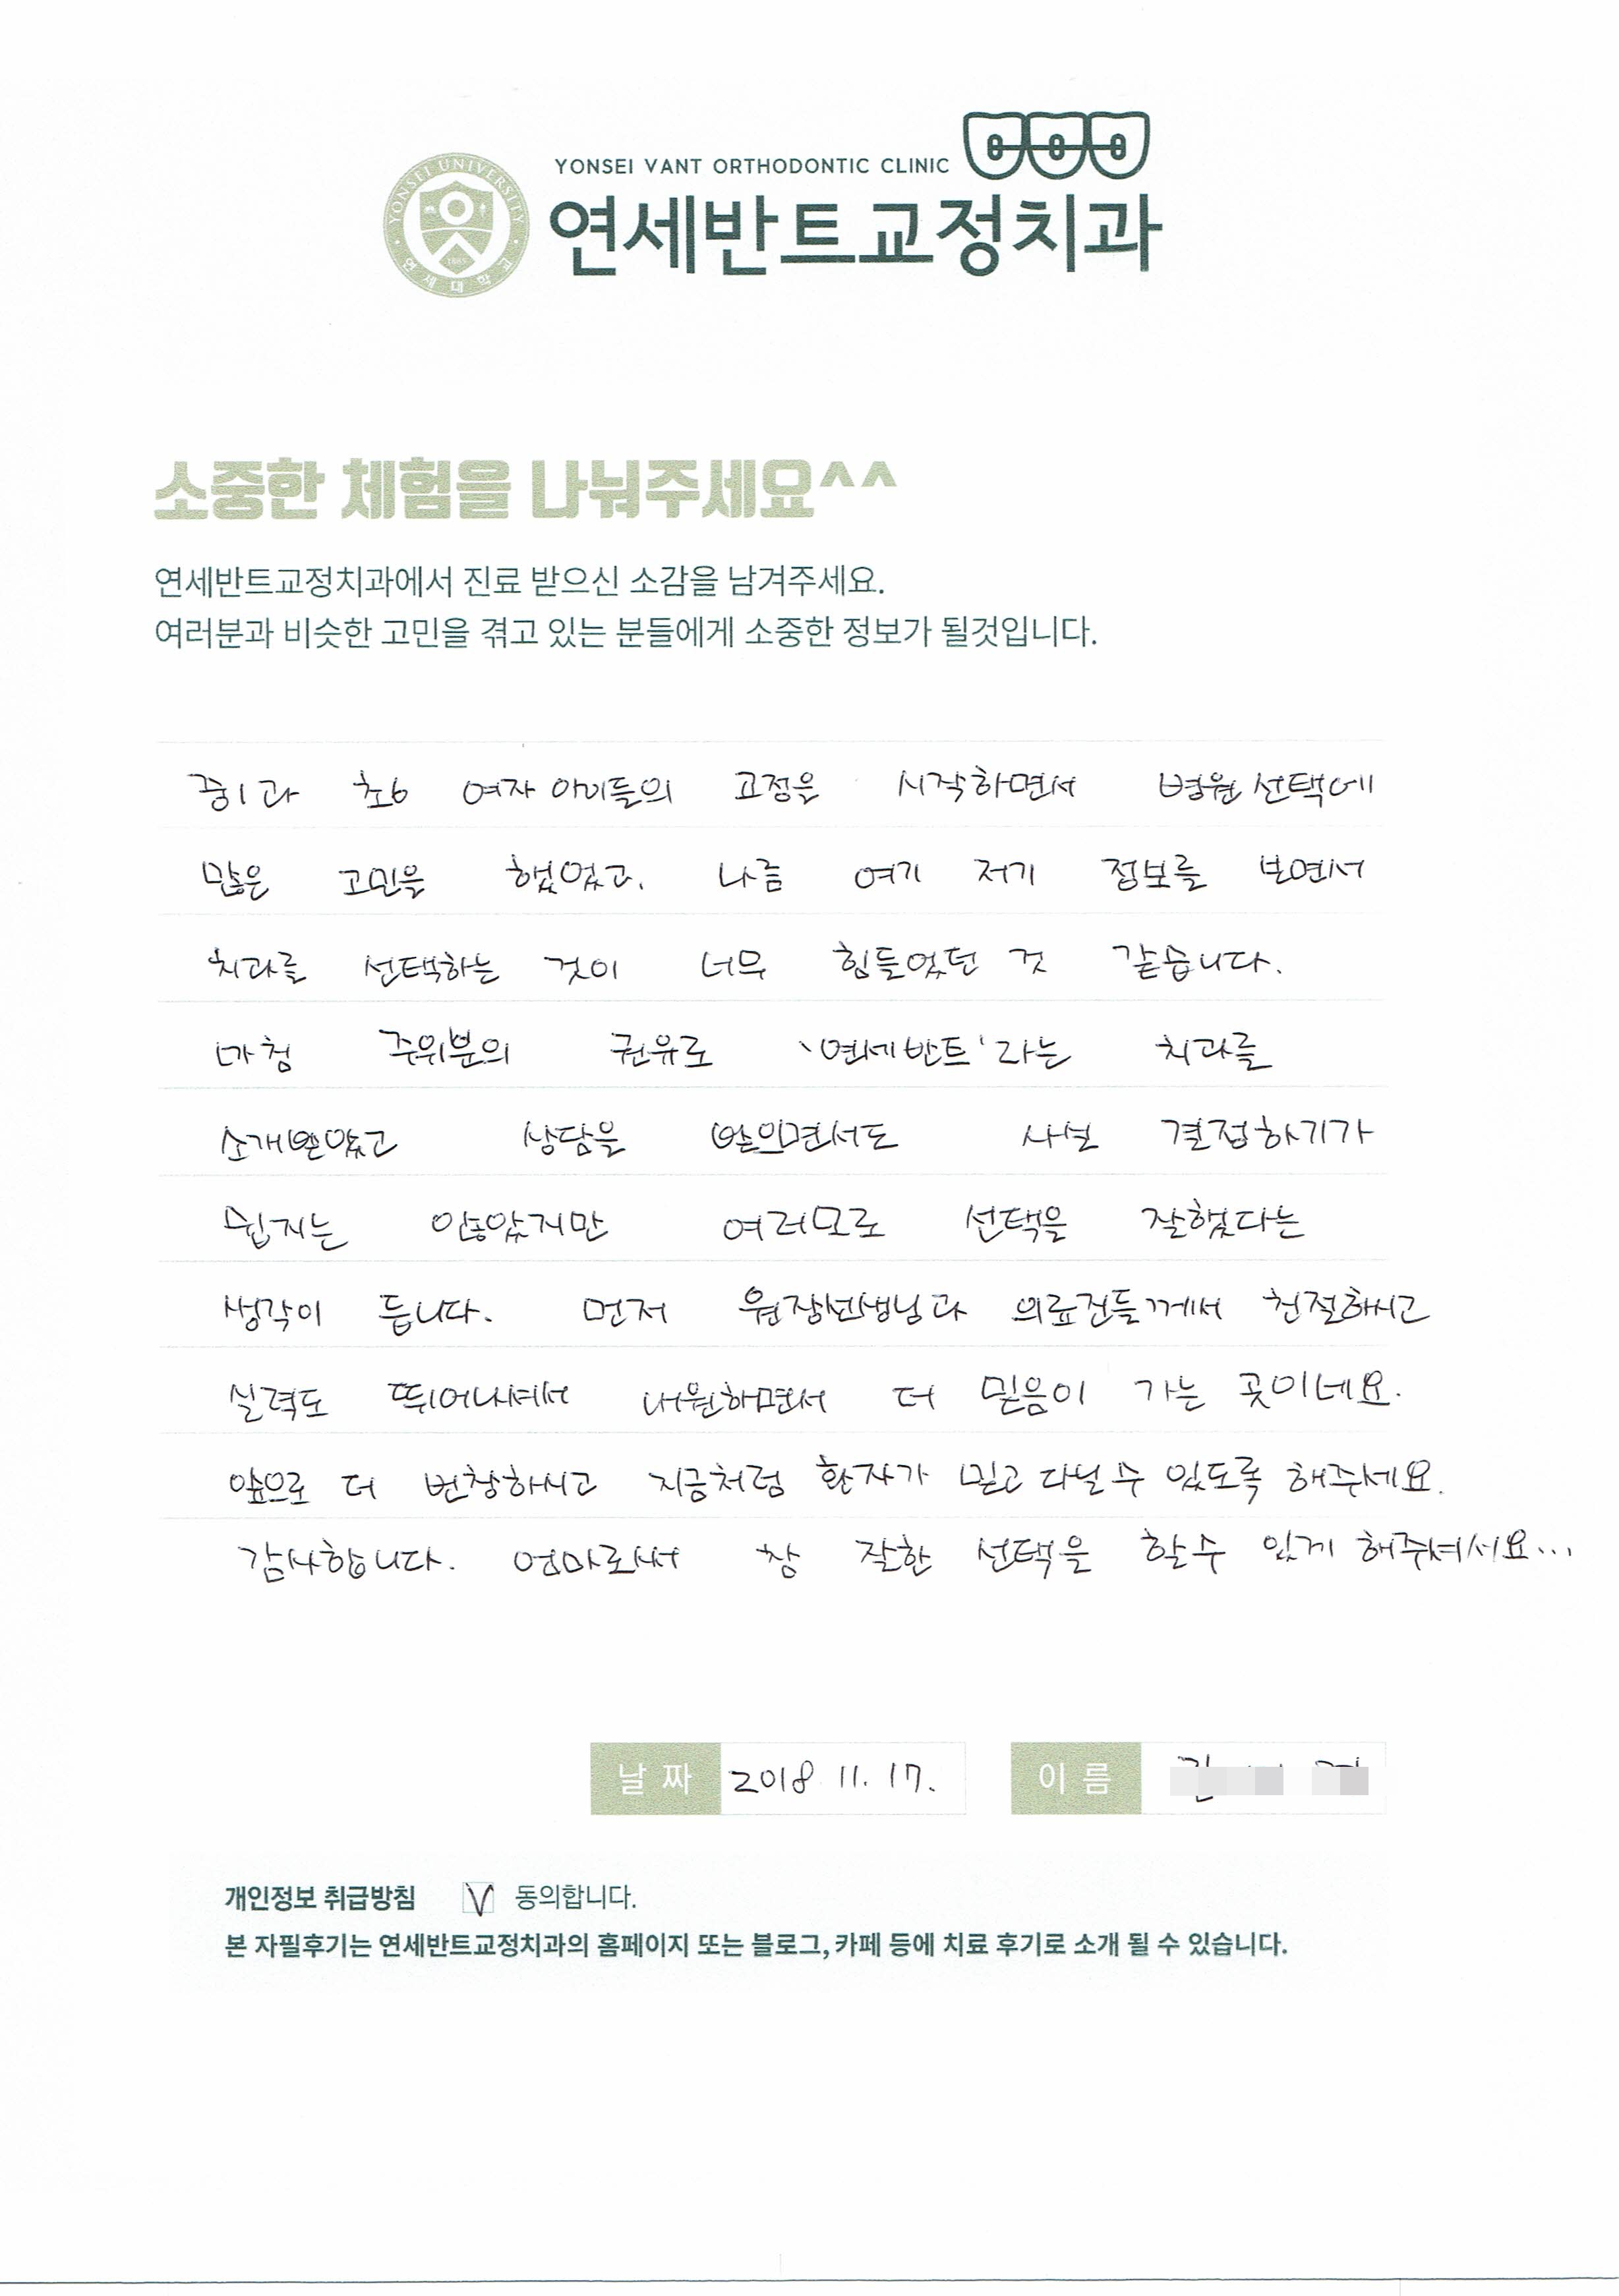 YONSEI VANT ORTHODONTIC CLINIC
YONSEI UNIVERSITY
1885
연세대학교
연세반트교정치과
소중한 체험을 나눠주세요^^
연세반트교정치과에서 진료 받으신 소감을 남겨주세요.
여러분과 비슷한 고민을 겪고 있는 분들에게 소중한 정보가 될것입니다.
중1과 초6 여자 아이들의 교정을 시작하면서 병원 선택에
많은 고민을 했었고, 나름 여기 저기 정보를 보면서
치과를 선택하는 것이 너무 힘들었던 것 같습니다.
마침 주위분의 권유로 '연세반트'라는 치과를
소개받았고 상담을 받으면서도 사실 결정하기가
쉽지는 않았지만 여러모로 선택을 잘했다는
생각이 듭니다. 먼저 원장선생님과 의료진들께서 친절하시고
실력도 뛰어나셔서 내원하면서 더 믿음이 가는 곳이네요.
앞으로 더 번창하시고 지금처럼 환자가 믿고 다닐 수 있도록 해주세요.
감사합니다. 엄마로써 참 잘한 선택을 할수 있게 해주셔서요...
날짜 2018 11. 17.
이름
개인정보 취급방침 V 동의합니다.
본 자필후기는 연세반트교정치과의 홈페이지 또는 블로그, 카페 등에 치료 후기로 소개 될 수 있습니다.